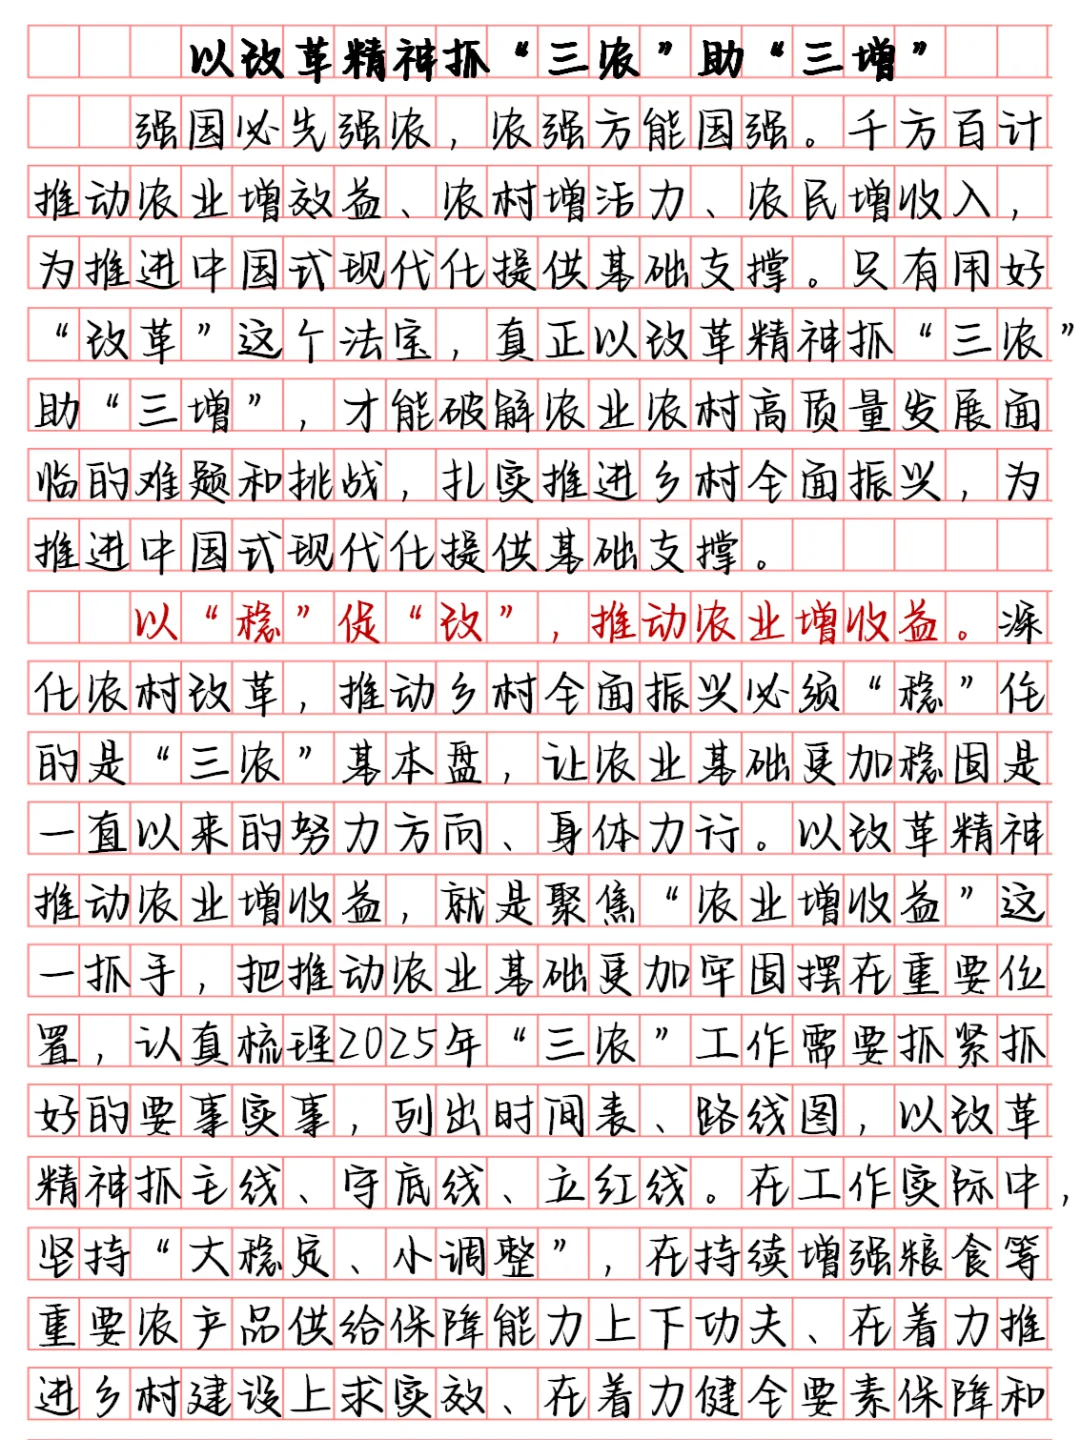 以改革精神抓“三农”助“三增”
强国必先强农，农强方能国强。千方百计
推动农业增效益、农村增活力、农民增收入，
为推进中国式现代化提供基础支撑。只有用好
“改革”这个法宝，真正以改革精神抓“三农”
助“三增”，才能破解农业农村高质量发展面
临的难题和挑战，扎实推进乡村全面振兴，为
推进中国式现代化提供基础支撑。
以“稳”促“改”，推动农业增收益。深
化农村改革，推动乡村全面振兴必须“稳”住
的是“三农”基本盘，让农业基础更加稳固是
一直以来的努力方向、身体力行。以改革精神
推动农业增收益，就是聚焦“农业增收益”这
一抓手，把推动农业基础更加牢固摆在重要位
置，认真梳理2025年“三农”工作需要抓紧抓
好的要事实事，列出时间表、路线图，以改革
精神抓主线、守底线、立红线。在工作实际中，
坚持“大稳定、小调整”，在持续增强粮食等
重要农产品供给保障能力上下功夫、在着力推
进乡村建设上求实效、在着力健全要素保障和